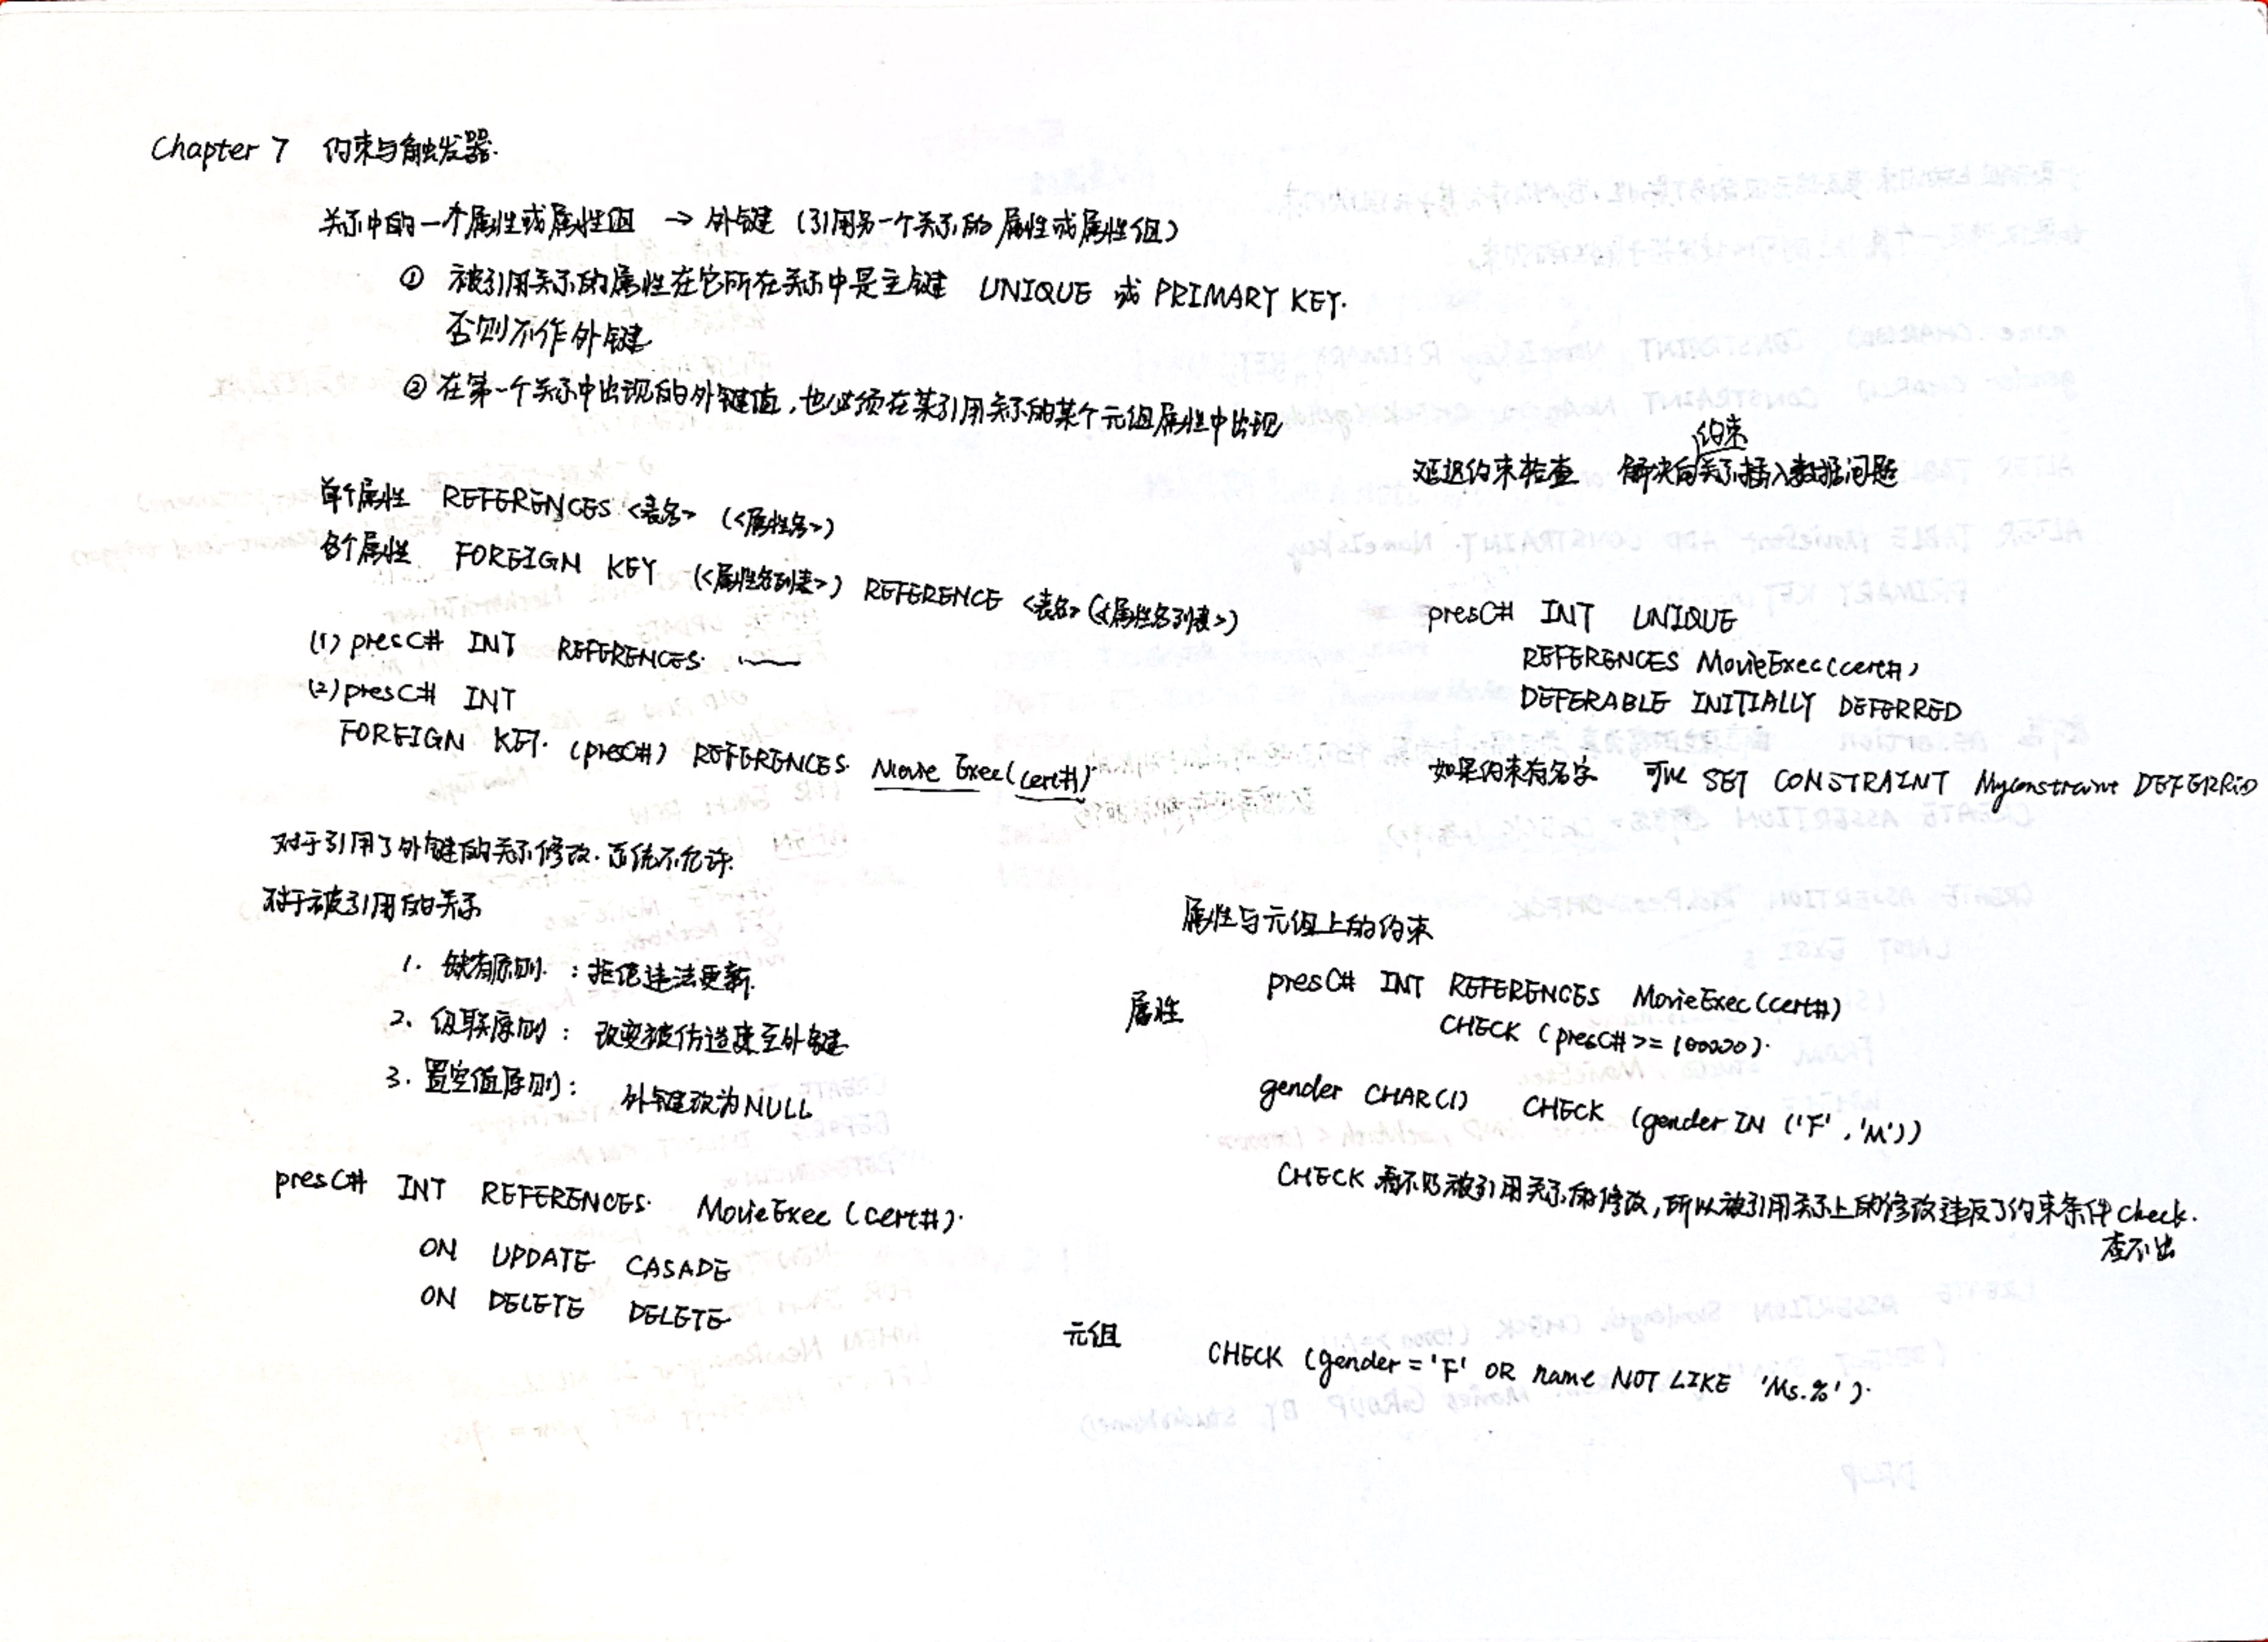 Chapter 7 约束与触发器.
关系中的一个属性或属性组 → 外键 (引用另一个关系的属性或属性组)
① 被引用关系的属性在它所在关系中是主键 UNIQUE 或 PRIMARY KEY.
否则不作外键
② 在第一个关系中出现的外键值，也必须在某引用关系的某个元组属性中出现
单个属性 REFERENCES <表名> (<属性名>)
多个属性 FOREIGN KEY (<属性名列表>) REFERENCE <表名> (<属性名列表>)
(1) presC# INT REFERENCES.
(2) presC# INT
FOREIGN KEY. (presC#) REFERENCES. Movie Exec(cert#).
对于引用了外键的关系修改. 系统不允许.
对于被引用的关系
1. 缺省原则. : 拒绝违法更新.
2. 级联原则 : 改变被仿造至外键
3. 置空值原则 : 外键改为NULL
presC# INT REFERENCES. MovieExec (cert#).
ON UPDATE CASADE
ON DELETE DELETE
延迟约束检查 解决向关系插入数据问题
约束
presC# INT UNIQUE
REFERENCES MovieExec(cert#)
DEFERABLE INITIALLY DEFERRED
如果约束有名字 可以 SET CONSTRAINT Myconstraint DEFERRED
属性与元组上的约束
属性 presC# INT REFERENCES MovieExec(cert#)
CHECK (presC# >= 100000).
gender CHAR(1) CHECK (gender IN ('F', 'M'))
CHECK 看不见被引用关系的修改, 所以被引用关系上的修改违反了约束条件check.
查不出
元组 CHECK (gender = 'F' OR name NOT LIKE 'Ms.%').